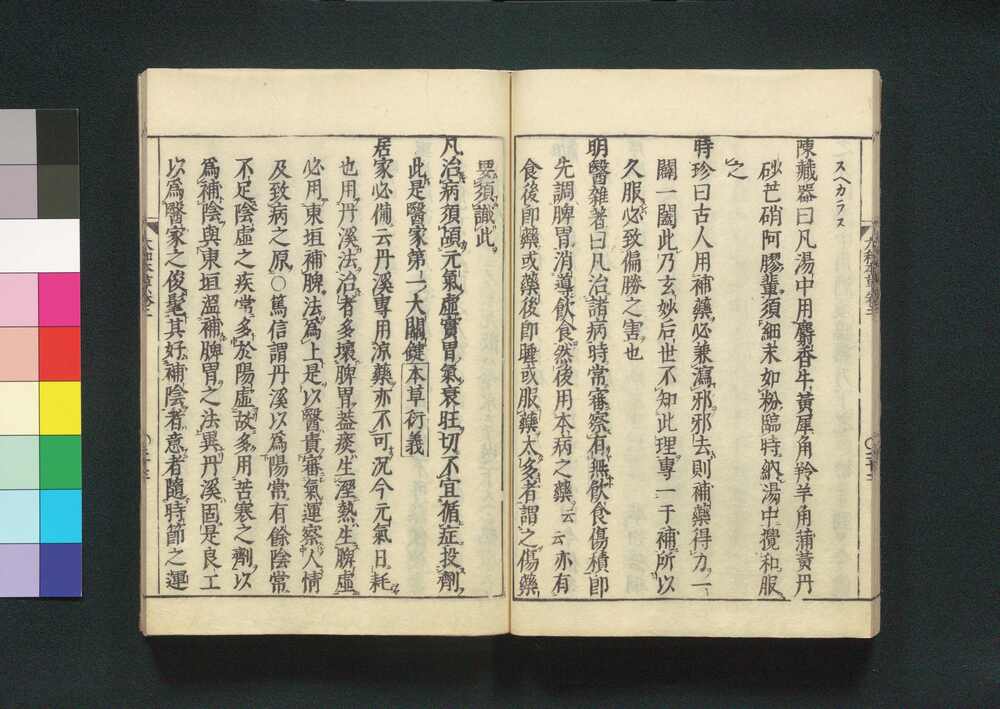 スヘカラス
陳藏器曰凡湯中用麝香牛黃犀角羚羊角蒲黃丹
砂芒硝阿膠輩須細末如粉臨時納湯中攪和服
之
時珍曰古人用補藥必兼瀉邪邪去則補藥得力一
闢一闔此乃玄妙后世不知此理專一于補所以
久服必致偏勝之害也
明醫雜著曰凡治諸病時常審察有無飲食傷積即
先調脾胃消導飲食然後用本病之藥云云亦有
食後即藥或藥後即睡或服藥太多者謂之傷藥
要須識此
凡治病須頃元氣虛實胃氣衰旺切不宜循症投劑
此是醫家第一大關鍵本草衍義
居家必備云丹溪專用涼藥亦不可況今元氣日耗
也用丹溪法治者多壞脾胃益痰生溼熱生脾虛
必用東垣補脾法爲上是以醫貴審氣運察人情
及致病之原○篤信謂丹溪以爲陽常有餘陰常
不足陰虛之疾常多於陽虛故多用苦寒之劑以
爲補陰與東垣溫補脾胃之法異丹溪固是良工
以爲醫家之俊髦其好補陰者意者隨時節之運